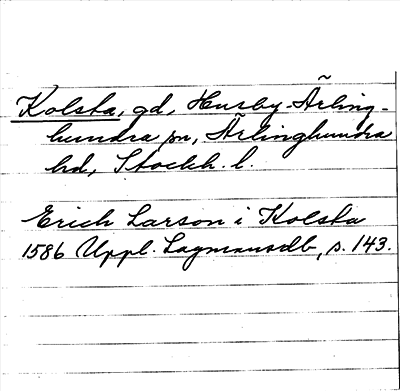 Kolsta, gd, Husby-Ärling-
hundra sn, Ärlinghundra
hd, Stockh. l.
Erich Larson i Kolsta
1586 Uppl. Lagmansdb, s. 143.